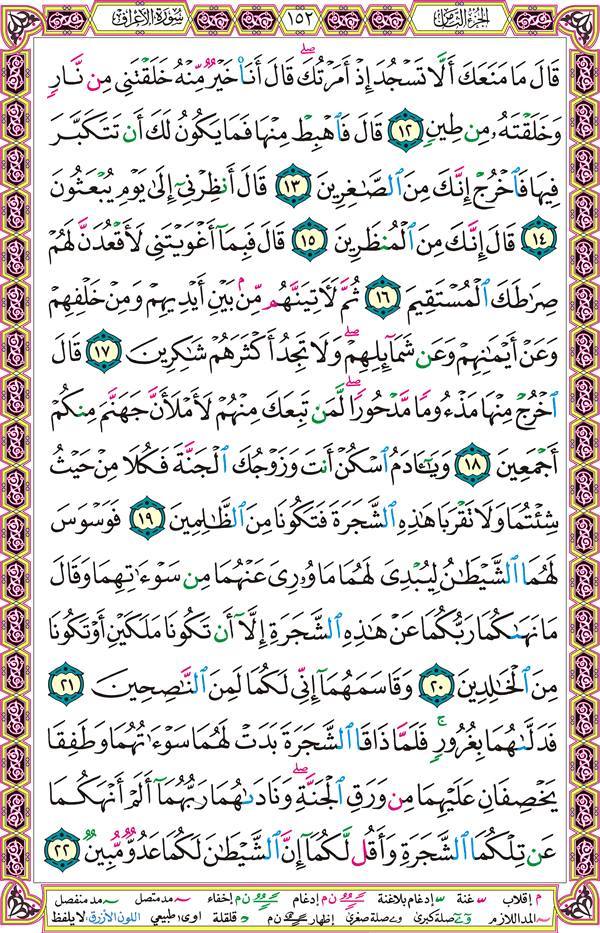 الجزء الثامن ١٥٢ سورة الأعراف
قَالَ مَا مَنَعَكَ أَلَّا تَسْجُدَ إِذْ أَمَرْتُكَ ۖ قَالَ أَنَا۠ خَيْرٌ مِّنْهُ خَلَقْتَنِى مِن نَّارٍ
وَخَلَقْتَهُۥ مِن طِينٍ ١٢ قَالَ فَٱهْبِطْ مِنْهَا فَمَا يَكُونُ لَكَ أَن تَتَكَبَّرَ
فِيهَا فَٱخْرُجْ إِنَّكَ مِنَ ٱلصَّـٰغِرِينَ ١٣ قَالَ أَنظِرْنِىٓ إِلَىٰ يَوْمِ يُبْعَثُونَ
١٤ قَالَ إِنَّكَ مِنَ ٱلْمُنظَرِينَ ١٥ قَالَ فَبِمَآ أَغْوَيْتَنِى لَأَقْعُدَنَّ لَهُمْ
صِرَٰطَكَ ٱلْمُسْتَقِيمَ ١٦ ثُمَّ لَـَٔاتِيَنَّهُم مِّنۢ بَيْنِ أَيْدِيهِمْ وَمِنْ خَلْفِهِمْ
وَعَنْ أَيْمَـٰنِهِمْ وَعَن شَمَآئِلِهِمْ ۖ وَلَا تَجِدُ أَكْثَرَهُمْ شَـٰكِرِينَ ١٧ قَالَ
ٱخْرُجْ مِنْهَا مَذْءُومًا مَّدْحُورًا ۖ لَّمَن تَبِعَكَ مِنْهُمْ لَأَمْلَأَنَّ جَهَنَّمَ مِنكُمْ
أَجْمَعِينَ ١٨ وَيَـٰٓـَٔادَمُ ٱسْكُنْ أَنتَ وَزَوْجُكَ ٱلْجَنَّةَ فَكُلَا مِنْ حَيْثُ
شِئْتُمَا وَلَا تَقْرَبَا هَـٰذِهِ ٱلشَّجَرَةَ فَتَكُونَا مِنَ ٱلظَّـٰلِمِينَ ١٩ فَوَسْوَسَ
لَهُمَا ٱلشَّيْطَـٰنُ لِيُبْدِىَ لَهُمَا مَا وُۥرِىَ عَنْهُمَا مِن سَوْءَٰتِهِمَا وَقَالَ
مَا نَهَىٰكُمَا رَبُّكُمَا عَنْ هَـٰذِهِ ٱلشَّجَرَةِ إِلَّآ أَن تَكُونَا مَلَكَيْنِ أَوْ تَكُونَا
مِنَ ٱلْخَـٰلِدِينَ ٢٠ وَقَاسَمَهُمَآ إِنِّى لَكُمَا لَمِنَ ٱلنَّـٰصِحِينَ ٢١
فَدَلَّىٰهُمَا بِغُرُورٍ ۚ فَلَمَّا ذَاقَا ٱلشَّجَرَةَ بَدَتْ لَهُمَا سَوْءَٰتُهُمَا وَطَفِقَا
يَخْصِفَانِ عَلَيْهِمَا مِن وَرَقِ ٱلْجَنَّةِ ۖ وَنَادَىٰهُمَا رَبُّهُمَآ أَلَمْ أَنْهَكُمَا
عَن تِلْكُمَا ٱلشَّجَرَةِ وَأَقُل لَّكُمَآ إِنَّ ٱلشَّيْطَـٰنَ لَكُمَا عَدُوٌّ مُّبِينٌ ٢٢
م إقلاب غنة إدغام بلاغنة ن م إدغام إخفاء مد متصل مد منفصل
المد اللازم صلة كبرى صلة صغرى إظهار ن م قلقلة اوى طبيعي اللون الأزرق: لا يلفظ